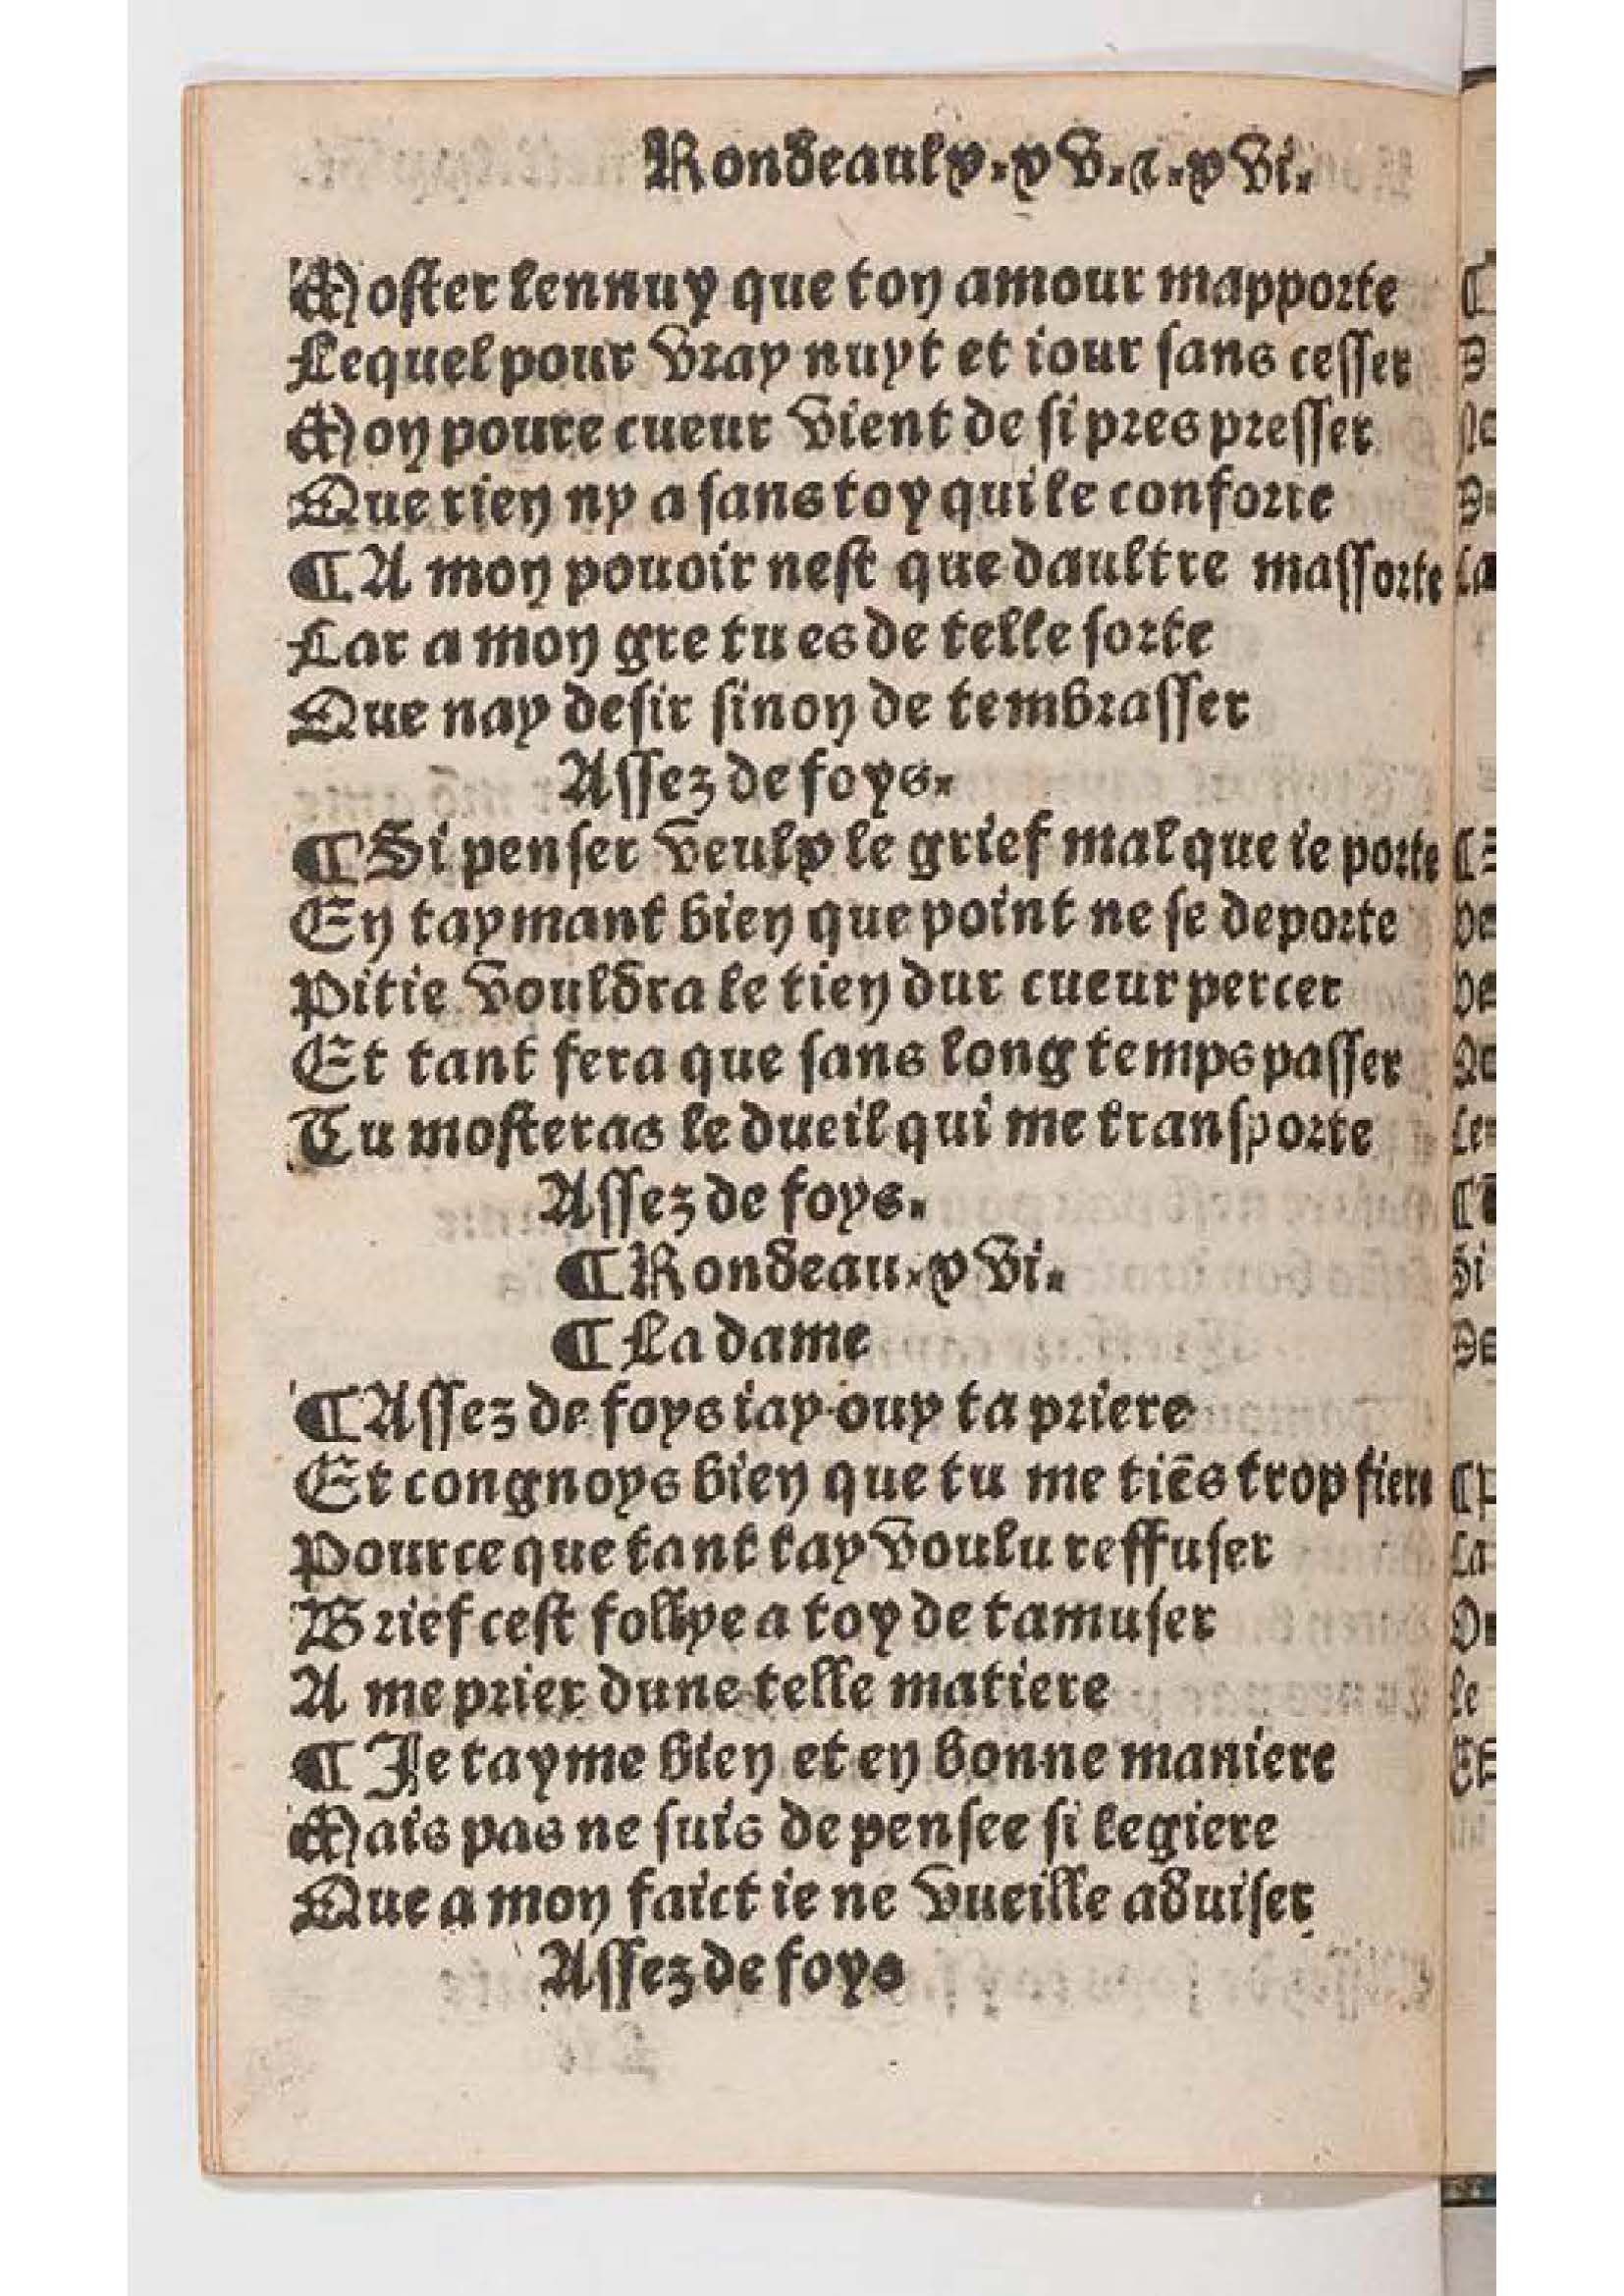 Rondeaulx.xv.⁊.xvi.
Moster lennuy que ton amour mapporte
Lequel pour vray nuyt et iour sans cesser
Mon poure cueur vient de si pres presser
Que rien ny a sans toy qui le conforte
¶A mon pouoir nest que daultre massorte
Car a mon gre tu es de telle sorte
Que nay desir sinon de tembrasser
Assez de foys.
¶Si penser veulx le grief mal que ie porte
En taymant bien que point ne se deporte
Pitie vouldra le tien dur cueur percer
Et tant fera que sans long temps passer
Tu mosteras le dueil qui me transporte
Assez de foys.
¶Rondeau.xvi.
¶La dame
¶Assez de foys iay ouy ta priere
Et congnoys bien que tu me tiẽs trop fiere
Pource que tant tay voulu reffuser
Brief cest follye a toy de tamuser
A me prier dune telle matiere
¶Je tayme bien et en bonne maniere
Mais pas ne suis de pensee si legiere
Que a mon faict ie ne vueille aduiser
Assez de foys